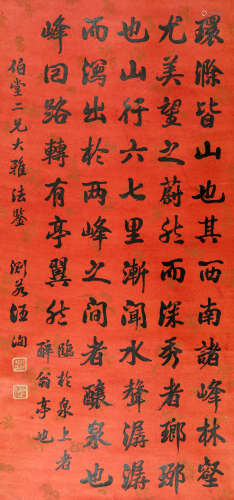 環滁皆山也其西南諸峰林壑
尤美望之蔚然而深秀者瑯琊
也山行六七里漸聞水聲潺潺
而瀉出於兩峰之間者釀泉也
峰回路轉有亭翼然臨於泉上者
醉翁亭也
伯堂二兄大雅法鑒 淵若汪洵